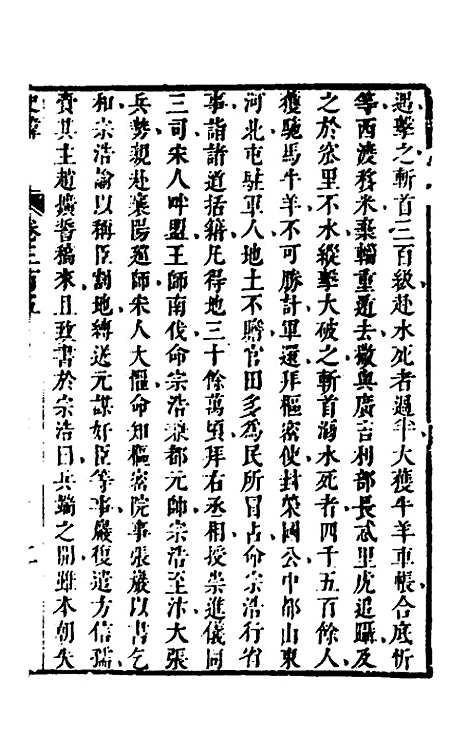 遇擊之斬首三百級赴水死者過半大獲牛羊車帳合底忻
等西渡移米棄輜重遁去撒與廣吉剌部長忒里虎追躡及
之於窊里不水縱擊大破之斬首溺水死者四千五百餘人
獲駞馬牛羊不可勝計軍還拜樞密使封榮國公中都山東
河北屯駐軍人地土不贍官田多為民所冒占命宗浩行省
事詣諸道括籍凡得地三十餘萬頃拜右丞相授崇進儀同
三司宋人呼盟王師南伐命宗浩兼都元帥宗浩至汴大張
兵勢親赴襄陽巡師宋人大慍命知樞密院事張巖以書乞
和宗浩諭以稱臣割地縛送元謀奸臣等事巖復遣方信孺
賫其主趙擴誓稿來且致書於宗浩曰兵端之開雖本朝失
史緯
卷二百五